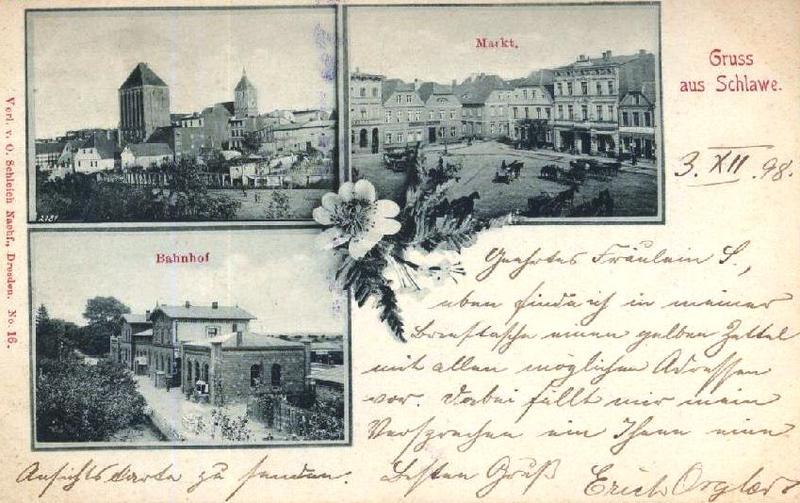 Markt.
Gruss
aus Schlawe.
3. XII. 98.
Bahnhof
Verl. v. O. Schleich Nachf., Dresden. No. 16.
2121
Geehrtes Fräulein S.,
eben finde ich in meiner
Brieftasche einen gelben Zettel
mit allen möglichen Adressen
vor. Dabei fällt mir mein
Versprechen ein Ihnen eine
Ansichtskarte zu senden. Besten Gruß
Erich